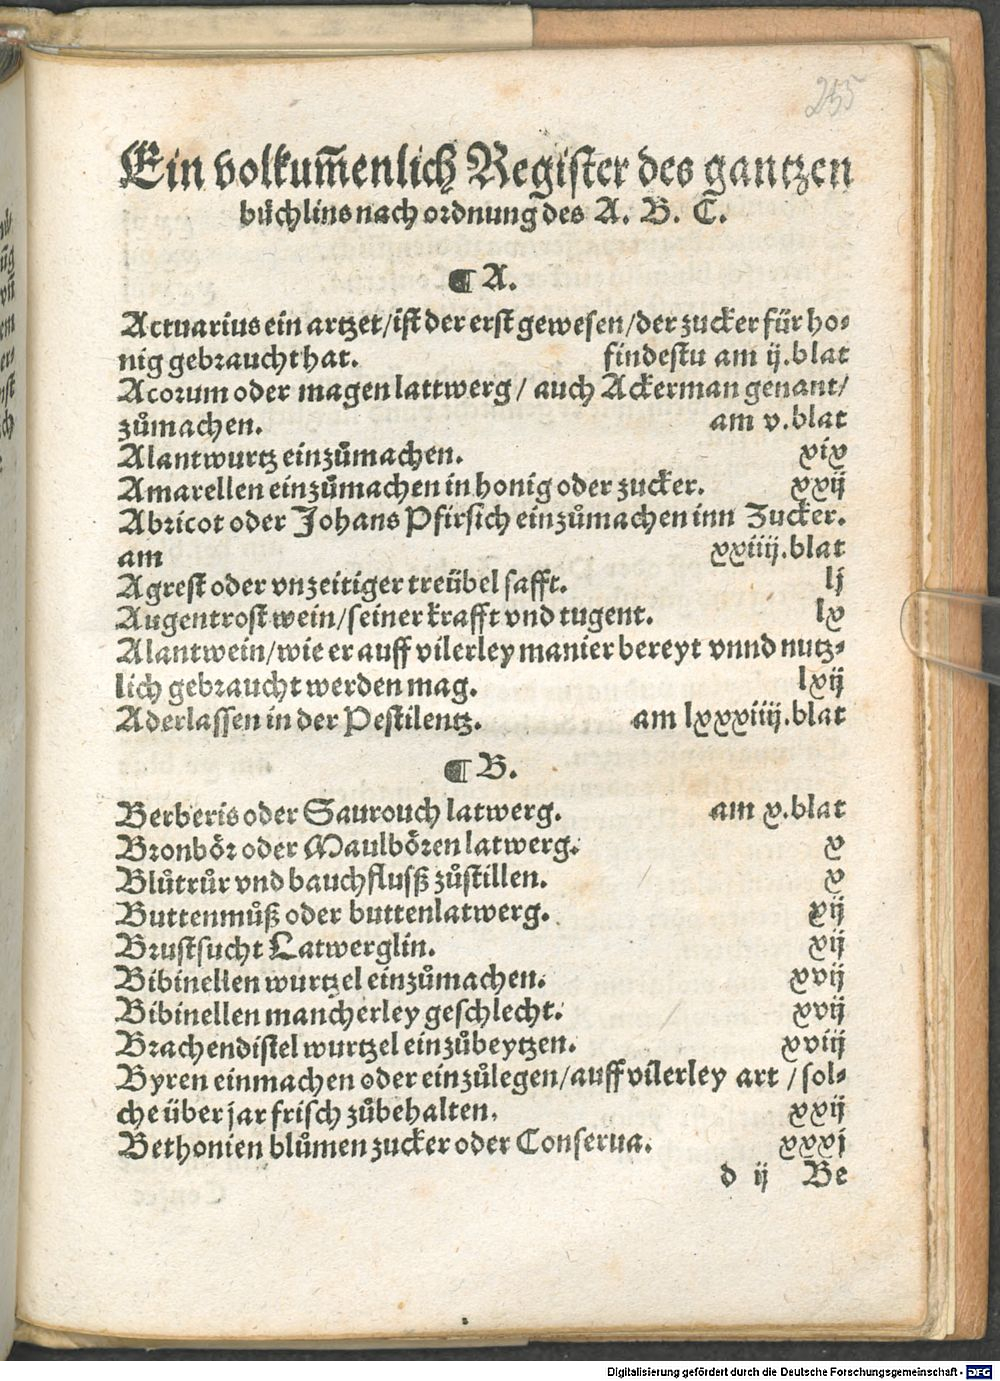 255
Ein volkum̃enlich Register des gantzen
bůchlins nach ordnung des A. B. C.
¶ A.
Actuarius ein artzet/ist der erst gewesen/der zucker für ho-
nig gebraucht hat. findestu am ij.blat
Acorum oder magen lattwerg/ auch Ackerman genant/
zůmachen. am v.blat
Alantwurtz einzůmachen. xix
Amarellen einzůmachen in honig oder zucker. xxij
Abricot oder Johans Pfirsich einzůmachen inn Zucker.
am xxiiij.blat
Agrest oder vnzeitiger treübel safft. lj
Augentrost wein/seiner krafft vnd tugent. lx
Alantwein/wie er auff vilerley manier bereyt vnnd nutz-
lich gebraucht werden mag. lxij
Aderlassen in der Pestilentz. am lxxxiiij.blat
¶ B.
Berberis oder Saurouch latwerg. am x.blat
Bronbör oder Maulbören latwerg. x
Blůtrůr vnd bauchflusß zůstillen. x
Buttenmůß oder buttenlatwerg. xij
Brustsucht Latwerglin. xij
Bibinellen wurtzel einzůmachen. xvij
Bibinellen mancherley geschlecht. xvij
Brachendistel wurtzel einzůbeytzen. xviij
Byren einmachen oder einzůlegen/auff vilerley art /sol-
che über jar frisch zůbehalten. xxij
Bethonien blůmen zucker oder Conserua. xxxj
d ij Be
Digitalisierung gefördert durch die Deutsche Forschungsgemeinschaft - DFG